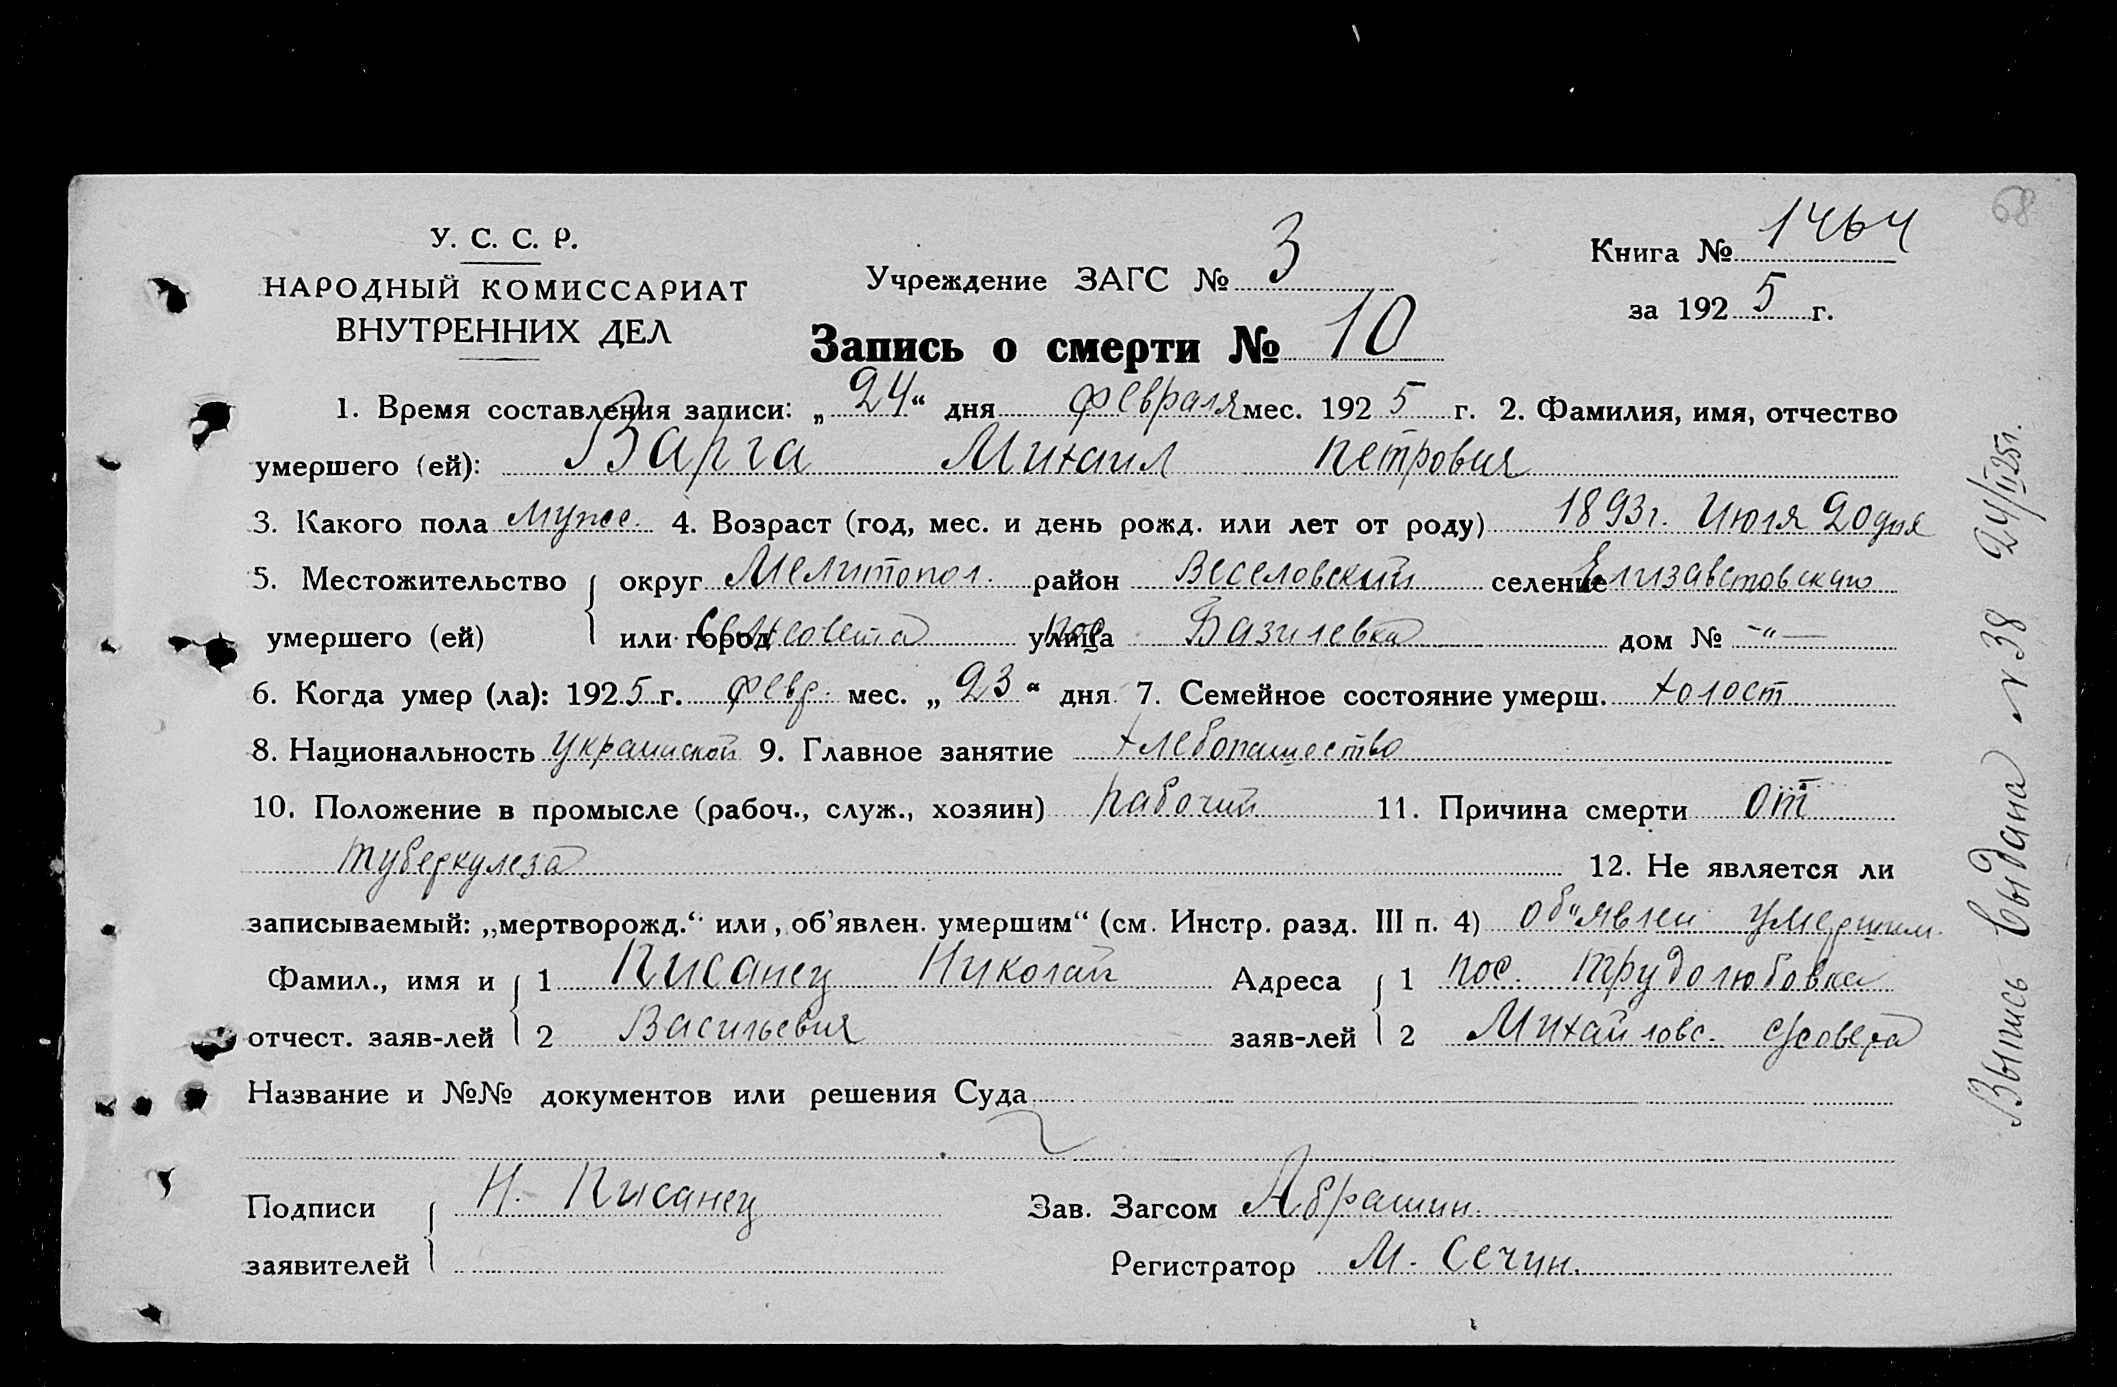 68
У. С. С. Р.
НАРОДНЫЙ КОМИССАРИАТ
ВНУТРЕННИХ ДЕЛ
Учреждение ЗАГС № 3
Книга № 1464
за 1925 г.
Запись о смерти № 10
1. Время составления записи: „24“ дня февраля мес. 1925 г. 2. Фамилия, имя, отчество
умершего (ей): Варга Михаил Петрович
3. Какого пола мужс. 4. Возраст (год, мес. и день рожд. или лет от роду) 1893г. Июля 20дня
5. Местожительство округ Мелитопол. район Веселовский селение Елизаветовскаго
умершего (ей) или город Сельсовета улица пос Базилевка дом № -"-
6. Когда умер (ла): 1925 г. февр. мес. „23“ дня 7. Семейное состояние умерш. холост
8. Национальность украинской 9. Главное занятие хлебопашество
10. Положение в промысле (рабоч., служ., хозяин) рабочий 11. Причина смерти от
туберкулеза 12. Не является ли
записываемый: „мертворожд.“ или „об’явлен. умершим“ (см. Инстр. разд. III п. 4) об"явлен умершим.
Фамил., имя и 1 Писанец Николай Адреса 1 пос. Трудолюбовка
отчест. заяв-лей 2 Васильевич заяв-лей 2 Михайловс. с/совета
Название и №№ документов или решения Суда
Подписи Н. Писанец Зав. Загсом Абрашин.
заявителей Регистратор М. Сечин.
Выпись выдана № 38 24/II 25г.